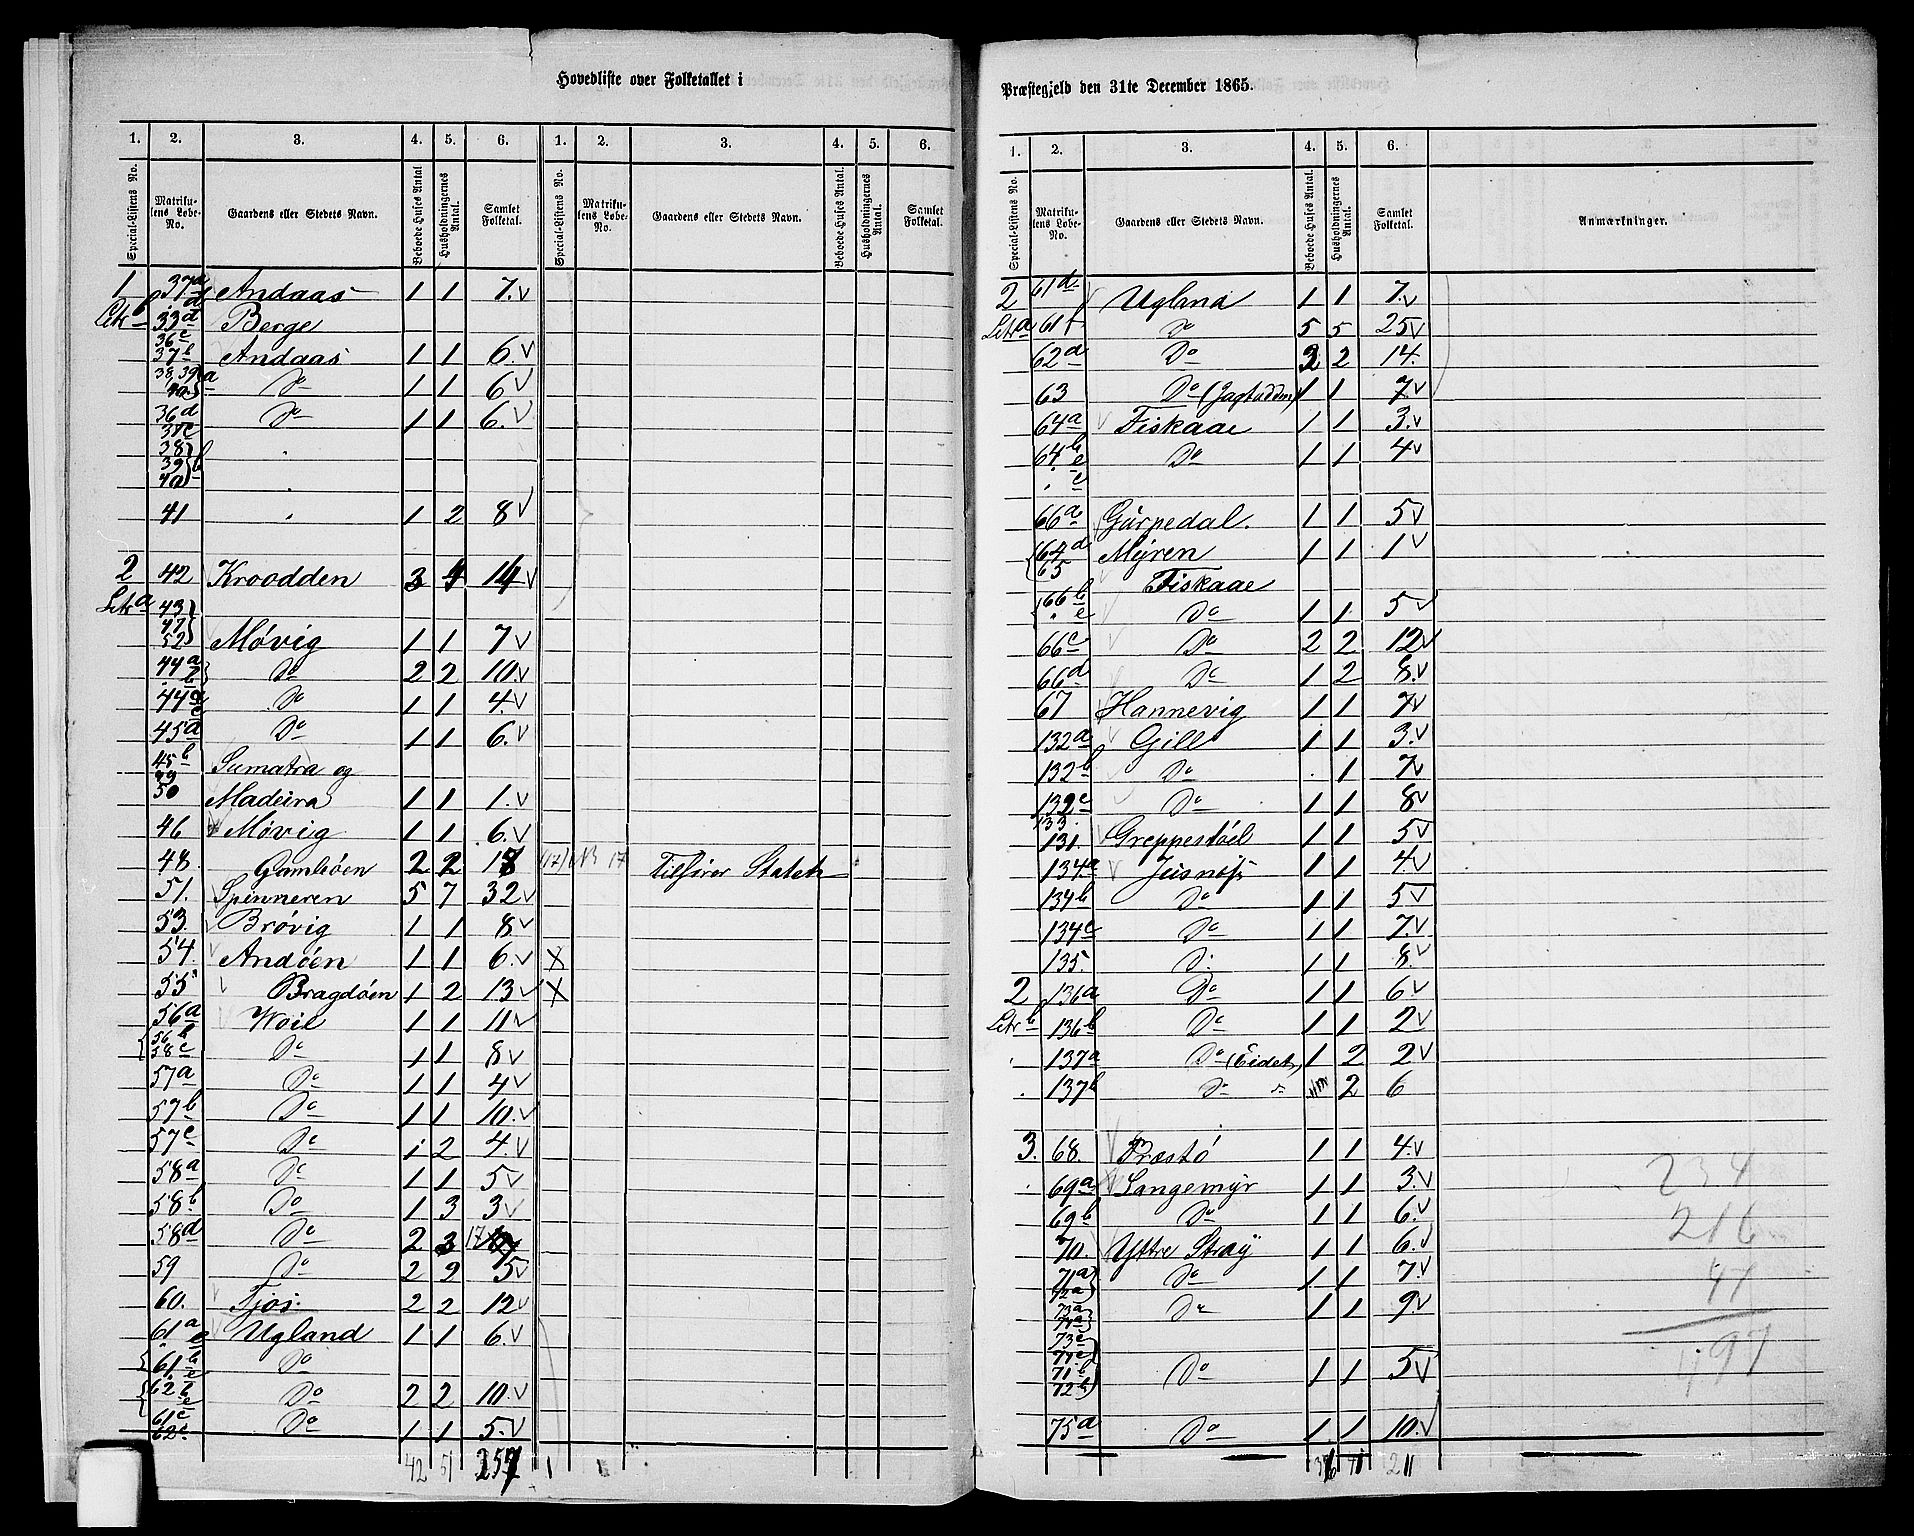 Hovedliste over Folketallet i
1. 2. 3. 4. 5. 6. 1. 2. 3. 4. 5. 6.
Special-Listens No. Matrikulens Løbe-No. Gaardens eller Stedets Navn. Beboede Huses Antal Husholdningernes Antal. Samlet Folketal. Special-Listens No. Matrikulens Løbe-No. Gaardens eller Stedets Navn. Beboede Huses Antal. Husholdningernes Antal. Samlet Folketal.
1 37a d Andaas 1 1 7. v
Litr b 33d Berge
36c
37b Andaas 1 1 6. v
38, 39 40 } a Do 1 1 6 v
36d Do 1 1 6. v
37c
38
39 } b
40
41 1 2 8 v
2 42 Kroodden 3 4 14 v
Litr a 43
47
52 Møvig 1 1 7 v
44a b Do 2 2 10. v
44d e Do 1 1 4. v
45a Do 1 1 6. v
45b Sumatra og
49
50 Madeira 1 1 1. v
46 Møvig 1 1 6. v
48. Gamløen 2 2 17 NB 17 Tilhører Staten
51. Spinneren 5 7 32 v
53. Brøvig 1 1 8 v
54. Andøen 1 1 6. v X
55 Bragdøen 1 2 13 v X
56a Woie 1 1 11 v
56b
58c Do 1 1 8 v
57a Do 1 1 4 v
57b Do 1 1 10. v
57c Do 1 2 4. v
58a Do 1 1 5 v
58b Do 1 3 3 v
58d Do 2 3 17
59 Do 2 2 5 v
60. Fjos. 2 2 12 v
61a e Ugland 1 1 6. v
61b Do
62b Do 2 2 10. v
61c
62c Do 1 1 5. v
42 51 257

Præstegjeld den 31te December 1865.
1. 2. 3. 4. 5. 6.
Special-Listens No. Matrikulens Løbe-No. Gaardens eller Stedets Navn. Beboede Huses Antal. Husholdningernes Antal. Samlet Folketal. Anmærkninger.
2 61d Ugland 1 1 7. v
Litr a 61f Do 5 5 25 v
62d Do 2 2 14.
63 Do (Jagtodden) 1 1 7 v
64a Fiskaae 1 1 3. v
64b e Do 1 1 4 v
c
66a Gurpedal. 1 1 5 v
64d Myren 1 1 1 v
65 Fiskaae
66b e Do 1 1 5 v
66c Do 2 2 12 v
66d Do 1 2 8. v
67 Hannevig 1 1 7 v
132a Gill 1 1 3. v
132b Do . 1 7 v
132c Do 1 1 8 v
133.
131. Greppestøel 1 1 5 v
134a 1 1 4. v
134b Do 1 1 5 v
134c Do 1 1 7. v
135. Do 1 1 8. v
2 136a Do 1 1 6. v
Litr b 136b Do 1 1 2 v
137a Do (Eidet) 1 2 2 v
137b Do 2 6
3. 68. Præstø 1 1 4. v
69a Langemyr 1 1 3. v
69b Do 1 1 6. v
70. Yttre Strøy 1 1 6. v
71a
72a Do 1 1 7. v
73a Do 1 1 9. v
74a
73c
74c
71b Do 1 1 5 v
72b
75a Do 1 1 10. v
36 41 211
234
216
47
497